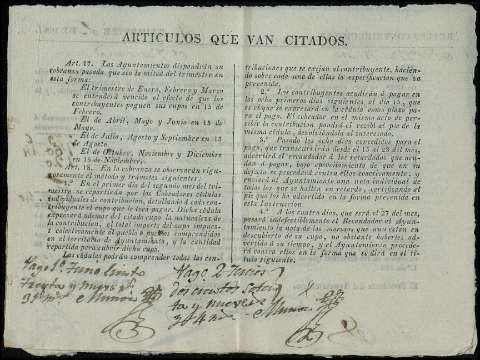 ARTICULOS QUE VAN CITADOS.
Art. 17. Los Ayuntamientos dispondrán su
cobranza pasada que sea la mitad del trimestre en
esta forma:
El trimestre de Enero, Febrero y Marzo
se entenderá vencido al efecto de que los
contribuyentes paguen sus cupos en 15 de
Febrero.
El de Abril, Mayo y Junio en 15 de
Mayo.
El de Julio, Agosto y Septiembre en 15
de Agosto.
El de Octubre, Noviembre y Diciembre
en 15 de Noviembre.
Art. 18. En la cobranza se observarán rigurosamente
el método y trámites siguientes:
1.º En el primer dia del segundo mes del trimestre
se repartirán por los Cobradores cédulas
individuales de contribucion, detallando á cada contribuyente
el cupo que le toca pagar. Dicha cédula
espresará ademas del citado cupo la naturaleza de
la contribucion, el total importe del cupo impuesto
colectivamente al pueblo ó pueblos comprendidos
en el territorio de Ayuntamiento, y la cantidad
repartida para cubrir dicho cupo.
Las cédulas podrán comprender todas las contribuciones
que se exijan al contribuyente, haciendo
sobre cada una de ellas la especificacion que va
prevenida.
2.º Los contribuyentes acudirán á pagar en
los ocho primeros dias siguientes al dia 15, que
se supone espresado en la cédula como plazo para
el pago. El cobrador en el mismo acto de percibir
la contribucion pondrá el recibí al pie de la
misma cédula, devolviéndola al interesado.
3.º Pasado los ocho dias concedidos para el
pago, que transcurrirán desde el 15 al 23 del mes,
advertirá el recaudador á los retardados que acudan
á pagar, bajo apercibimiento de que en su
defecto se procederá contra ellos ejecutivamente; y
pasará al Ayuntamiento una nota individual de
todos los que se hallen en retardo, certificando al
pie que los ha advertido en la forma prevenida en
esta Instruccion.
4.º A los cuatro dias, que será el 27 del mes,
pasará indefectiblemente el Recaudador al Ayuntamiento
la nota de los morosos que aun esten en
descubierto de su cupo, no obstante haberles advertido
á su tiempo, y el Ayuntamiento procederá
contra ellos en la forma que se dirá en el
título siguiente.
Pago 2 Tercios
doscientos